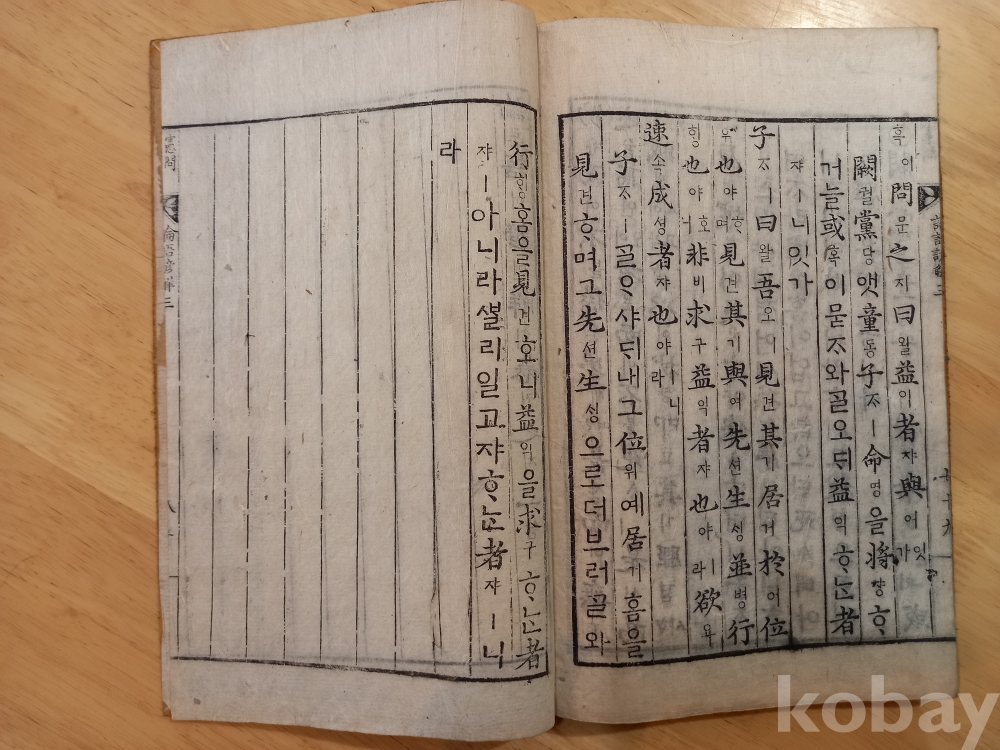 혹이問문之지曰왈益익者쟈與여잇가
闕궐黨당앳童동子ᄌᆞㅣ命명을將쟝ᄒᆞ
거늘或혹이묻ᄌᆞ와ᄀᆞᆯ오ᄃᆡ益익ᄒᆞᄂᆞᆫ者
쟈ㅣ니잇가
子ᄌᆞㅣ曰왈吾오ㅣ見견其기居거於어位
위也야ᄒᆞ며見견其기與여先션生ᄉᆡᆼ並병行
ᄒᆡᆼ也야호니非비求구益익者쟈也야ㅣ라欲욕
速속成셩者쟈也야ㅣ니라
子ᄌᆞㅣᄀᆞᆯᄋᆞ샤ᄃᆡ나그位위예居거홈을
見견ᄒᆞ며그先션生ᄉᆡᆼ으로더브러ᄀᆞᆯ와
行ᄒᆡᆼ홈을見견호니益익을求구ᄒᆞᄂᆞᆫ者
쟈ㅣ아니라ᄲᆞᆯ리일고쟈ᄒᆞᄂᆞᆫ者쟈ㅣ니
라
憲問
論語諺解三
kobay